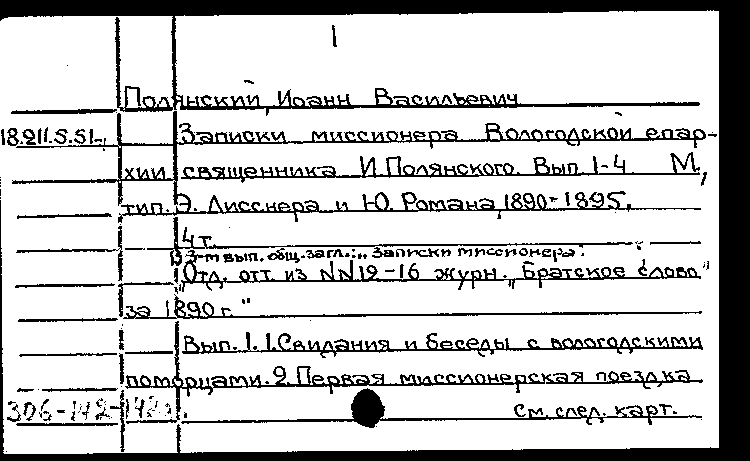 1
Полянский, Иоанн Васильевич
18.211.5.51.
Записки миссионера Вологодской епар-
хии священника И. Полянского. Вып. 1-4 М.,
тип. Э. Лисснера и Ю. Романа, 1890-1895.
4 т.
В 3-м вып. общ. загл.: „Записки миссионера".
„Отд. отт. из NN 12-16 журн. „Братское слово"
за 1890 г."
Вып. 1. 1. Свидания и беседы с вологодскими
поморцами. 2. Первая миссионерская поездка
306-142
См. след. карт.